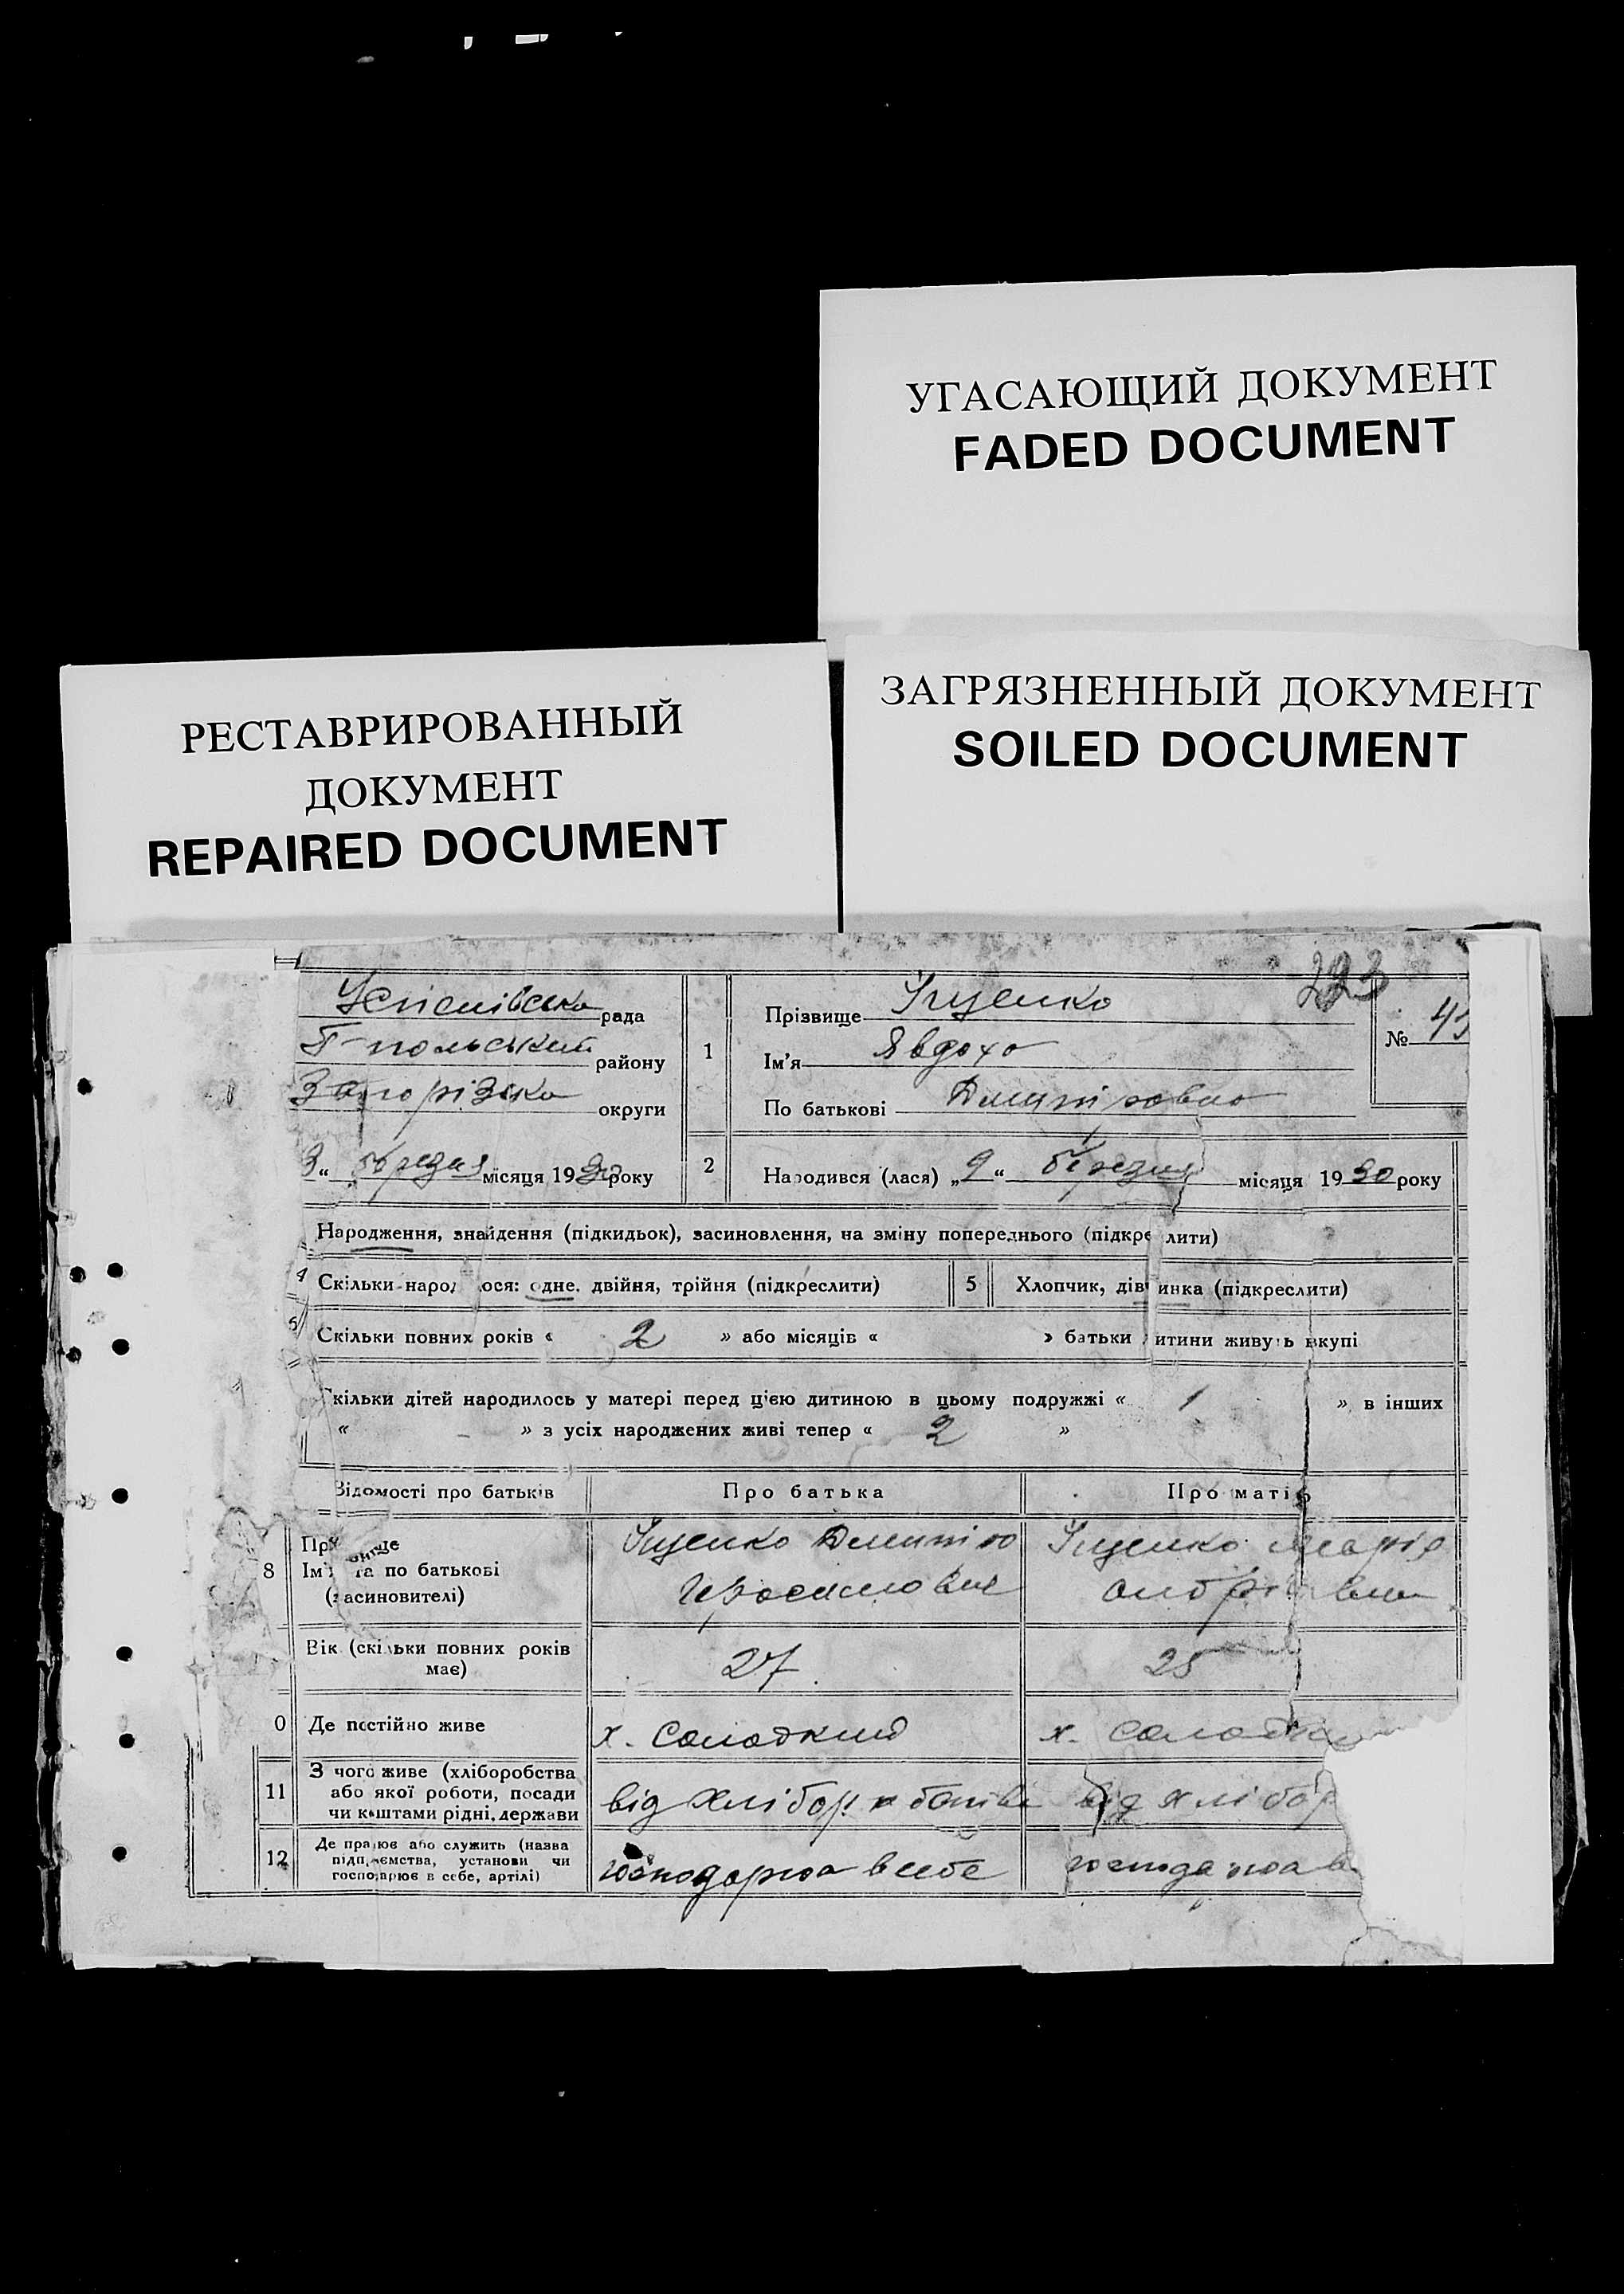 УГАСАЮЩИЙ ДОКУМЕНТ
FADED DOCUMENT
ЗАГРЯЗНЕННЫЙ ДОКУМЕНТ
SOILED DOCUMENT
РЕСТАВРИРОВАННЫЙ
ДОКУМЕНТ
REPAIRED DOCUMENT
223
рада
польський району
Запорізька округи
1
Прізвище Іщенко
Ім'я Явдоха
По батькові
№
березня місяця 1930 року
2
Народився (лася) „ 2 “ березня місяця 1930 року
Народження, знайдення (підкидьок), засиновлення, на зміну попереднього (підкре лити)
4 Скільки наро ося: одне, двійня, трійня (підкреслити)
5 Хлопчик, дів инка (підкреслити)
Скільки повних років « 2 » або місяців « » батьки итини живуть вкупі
кільки дітей народилось у матері перед цією дитиною в цьому подружжі « 1 » в інших
« – » з усіх народжених живі тепер « 2 »
Відомості про батьків
Про батька
Про матір
8
Прізвище
Ім'я та по батькові
(засиновителі)
Іщенко
Іщенко Марія
Вік (скільки повних років
має)
27
25
0 Де постійно живе
х. Солодкий
х.
11
З чого живе (хліборобства
або якої роботи, посади
чи коштами рідні, держави
від хлібор
від хлібор
12
Де працює або служить (назва
підприємства, установи чи
господарює в себе, артілі)
господарюа в себе